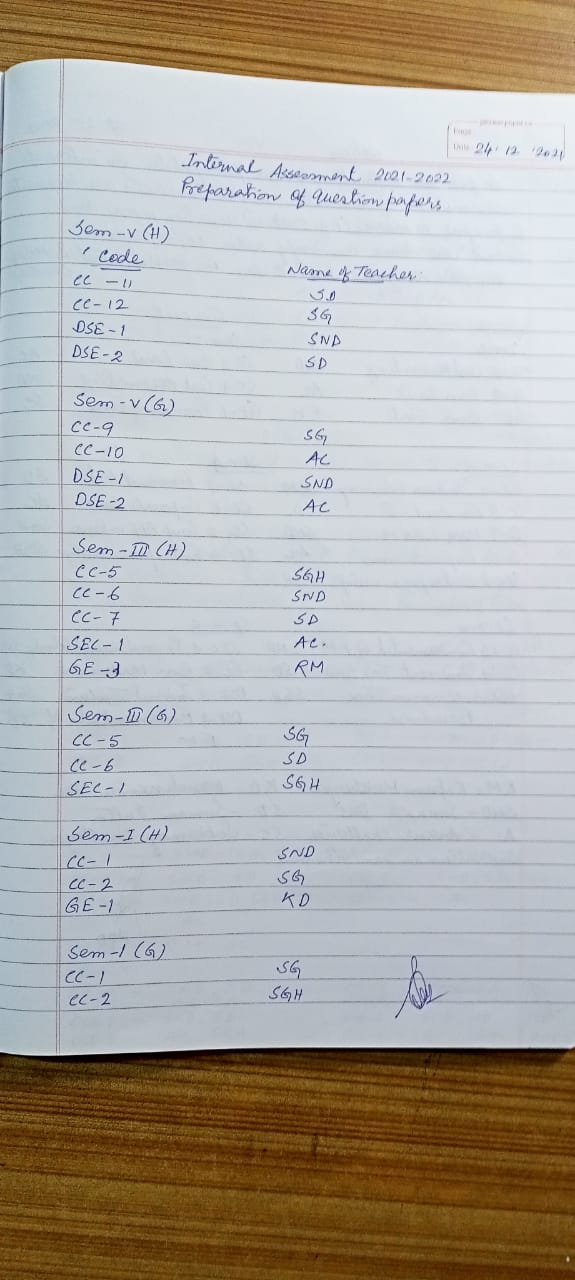 Page
Date 24 / 12 / 2021
Internal Assessment 2021-2022
Preparation of Question papers
Sem-V (H)
Code Name of Teacher:
CC-11 SD
CC-12 SG
DSE-1 SND
DSE-2 SD
Sem-V (G)
CC-9 SG
CC-10 AC
DSE-1 SND
DSE-2 AC
Sem-III (H)
CC-5 SGH
CC-6 SND
CC-7 SD
SEC-1 AC.
GE-3 RM
Sem-III (G)
CC-5 SG
CC-6 SD
SEC-1 SGH
Sem-I (H)
CC-1 SND
CC-2 SG
GE-1 KD
Sem-I (G)
CC-1 SG
CC-2 SGH